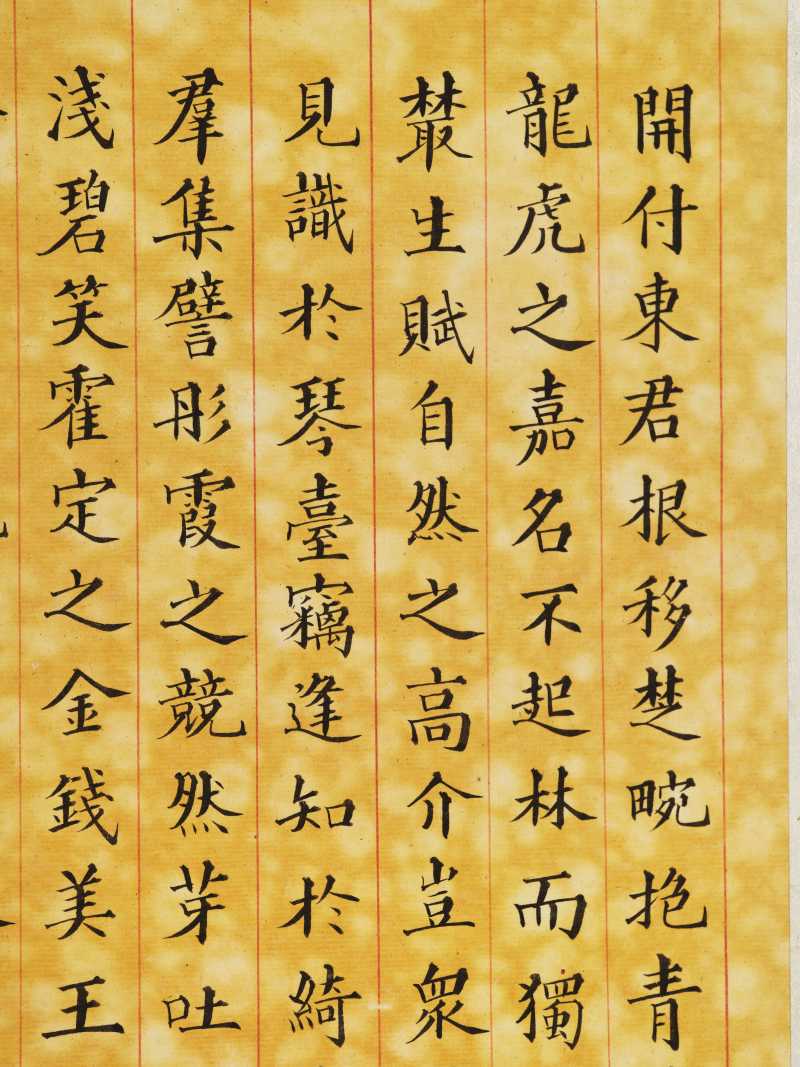 開付東君根移楚畹抱青
龍虎之嘉名不起林而獨
藂生賦自然之高介豈衆
見識於琴臺竊逢知於綺
羣集譬彤霞之競然芽吐
淺碧笑霍定之金錢美王